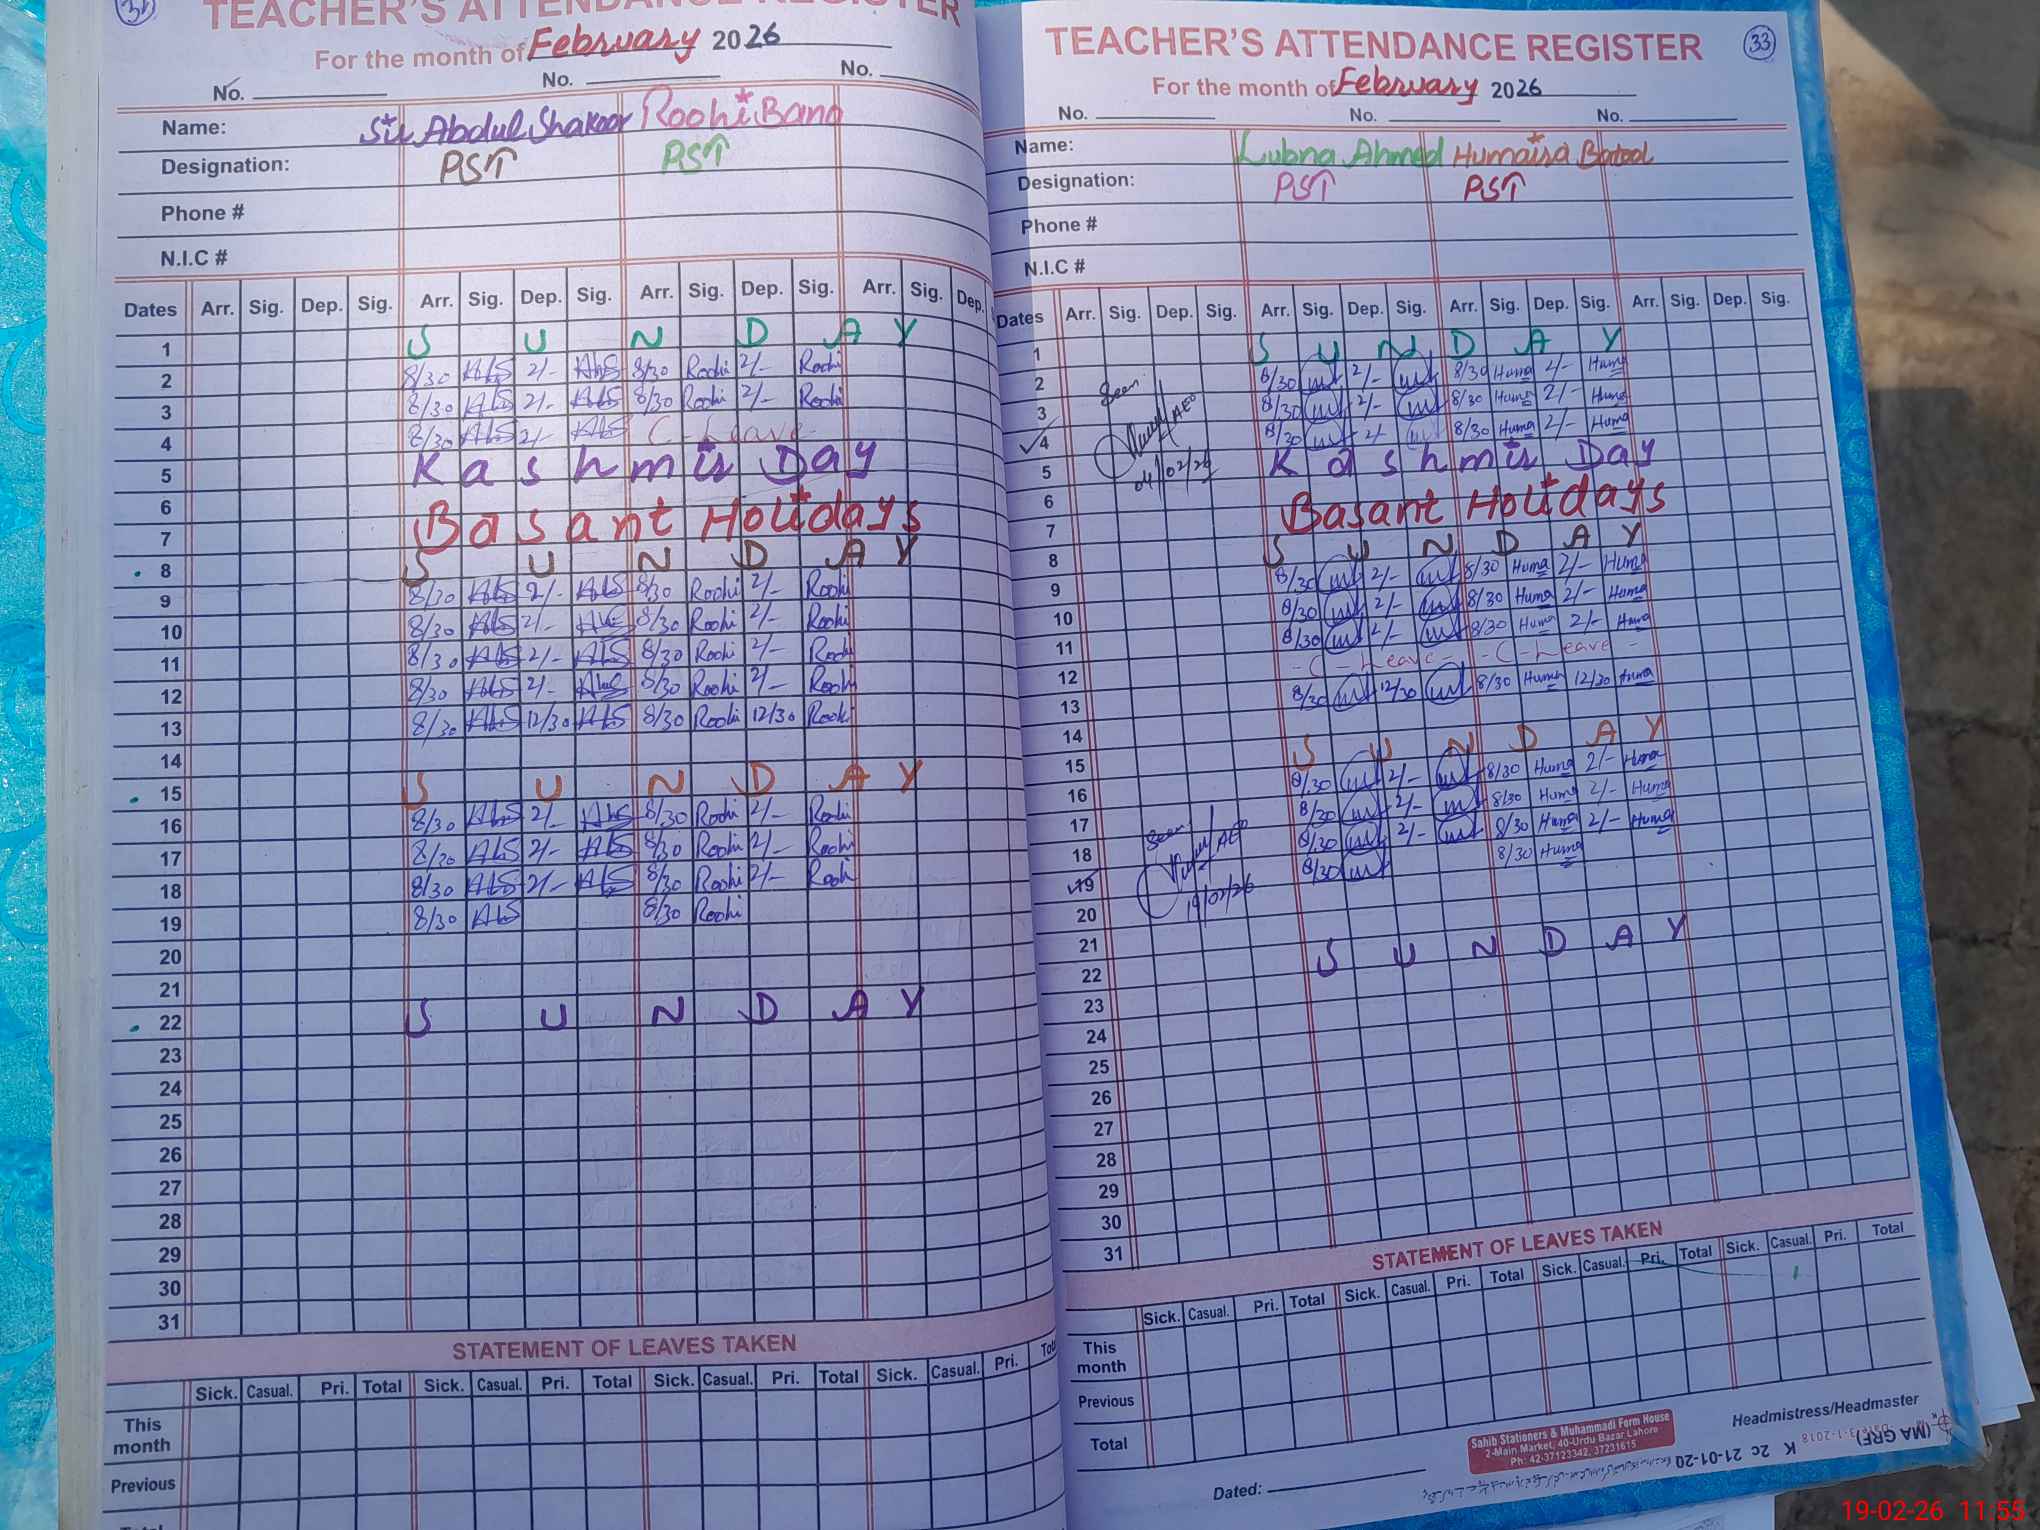 TEACHER'S ATTENDANCE REGISTER
For the month of February 2026
No. No. No.
Name: Sir Abdul Shakoor Roohi Bano
Designation: PST PST
Phone #
N.I.C #
Dates Arr. Sig. Dep. Sig. Arr. Sig. Dep. Sig. Arr. Sig. Dep. Sig. Arr. Sig. Dep.
1 S U N D A Y
2 8/30 2/- 8/30 Roohi 2/- Roohi
3 8/30 2/- 8/30 Roohi 2/- Roohi
4 8/30 2/- C - Leave -
5 Kashmir Day
6
7 Basant Holidays
8 S U N D A Y
9 8/30 2/- 8/30 Roohi 2/- Roohi
10 8/30 2/- 8/30 Roohi 2/- Roohi
11 8/30 2/- 8/30 Roohi 2/- Roohi
12 8/30 2/- 8/30 Roohi 2/- Roohi
13 8/30 12/30 8/30 Roohi 12/30 Roohi
14
15 S U N D A Y
16 8/30 2/- 8/30 Roohi 2/- Roohi
17 8/30 2/- 8/30 Roohi 2/- Roohi
18 8/30 2/- 8/30 Roohi 2/- Roohi
19 8/30 8/30 Roohi
20
21
22 S U N D A Y
23
24
25
26
27
28
29
30
31
STATEMENT OF LEAVES TAKEN
Sick. Casual. Pri. Total Sick. Casual. Pri. Total Sick. Casual. Pri. Total Sick. Casual. Pri.
This month
Previous
TEACHER'S ATTENDANCE REGISTER 33
For the month of February 2026
No. No. No.
Name: Lubna Ahmed Humaira Batool
Designation: PST PST
Phone #
N.I.C #
Dates Arr. Sig. Dep. Sig. Arr. Sig. Dep. Sig. Arr. Sig. Dep. Sig. Arr. Sig. Dep. Sig.
1 S U N D A Y
2 8/30 2/- 8/30 Huma 2/- Huma
3 Seen 8/30 2/- 8/30 Huma 2/- Huma
4 AEO 8/30 2/- 8/30 Huma 2/- Huma
5 04/02/26 Kashmir Day
6
7 Basant Holidays
8 S U N D A Y
9 8/30 2/- 8/30 Huma 2/- Huma
10 8/30 2/- 8/30 Huma 2/- Huma
11 8/30 2/- 8/30 Huma 2/- Huma
12 - C - Leave - - C - Leave -
13 8/30 12/30 8/30 Huma 12/30 Huma
14
15 S U N D A Y
16 8/30 2/- 8/30 Huma 2/- Huma
17 8/30 2/- 8/30 Huma 2/- Huma
18 Seen 8/30 2/- 8/30 Huma 2/- Huma
19 AEO 8/30 8/30 Huma
20 19/02/26
21
22 S U N D A Y
23
24
25
26
27
28
29
30
31
STATEMENT OF LEAVES TAKEN
Sick. Casual. Pri. Total Sick. Casual. Pri. Total Sick. Casual. Pri. Total Sick. Casual. Pri. Total
This month 1
Previous
Total
Sahib Stationers & Muhammadi Form House
2-Main Market, 40-Urdu Bazar Lahore
Ph: 42-37123342, 37231615
Headmistress/Headmaster
Dated:
(MA GRF) K 2c 21-01-20
19-02-26 11:55